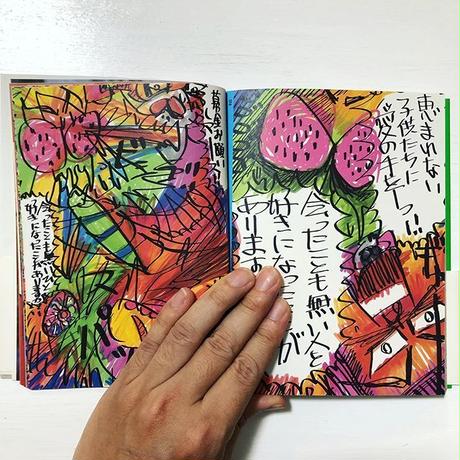 恵まれない
子供たちに
愛の手をーっ!!
会ったことも無い人を
好きになったことが
あります
募金お願い
会ったことも無い人を
好きになったことがあります。